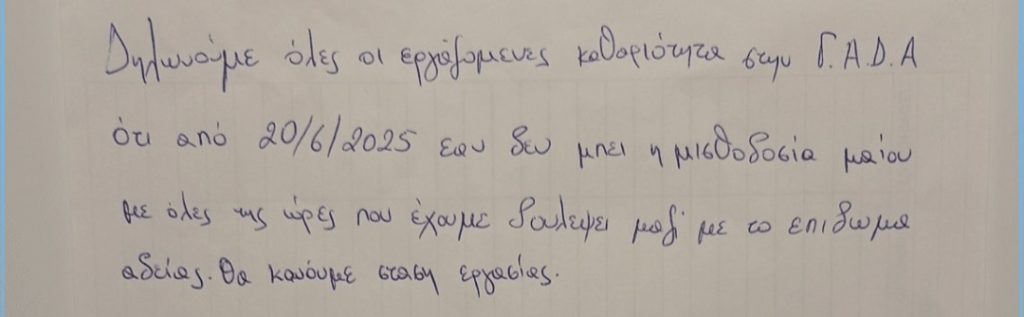 Δηλωνούμε όλες οι εργάζομενες καθαριότητα στην Γ.Α.Δ.Α
ότι από 20/6/2025 εαν δεν μπει η μισθοδοσία μαίου
με όλες της ώρες που έχουμε δουλεψει μαζί με το επιδωμα
αδείας. Θα κανούμε σταση εργασίας.